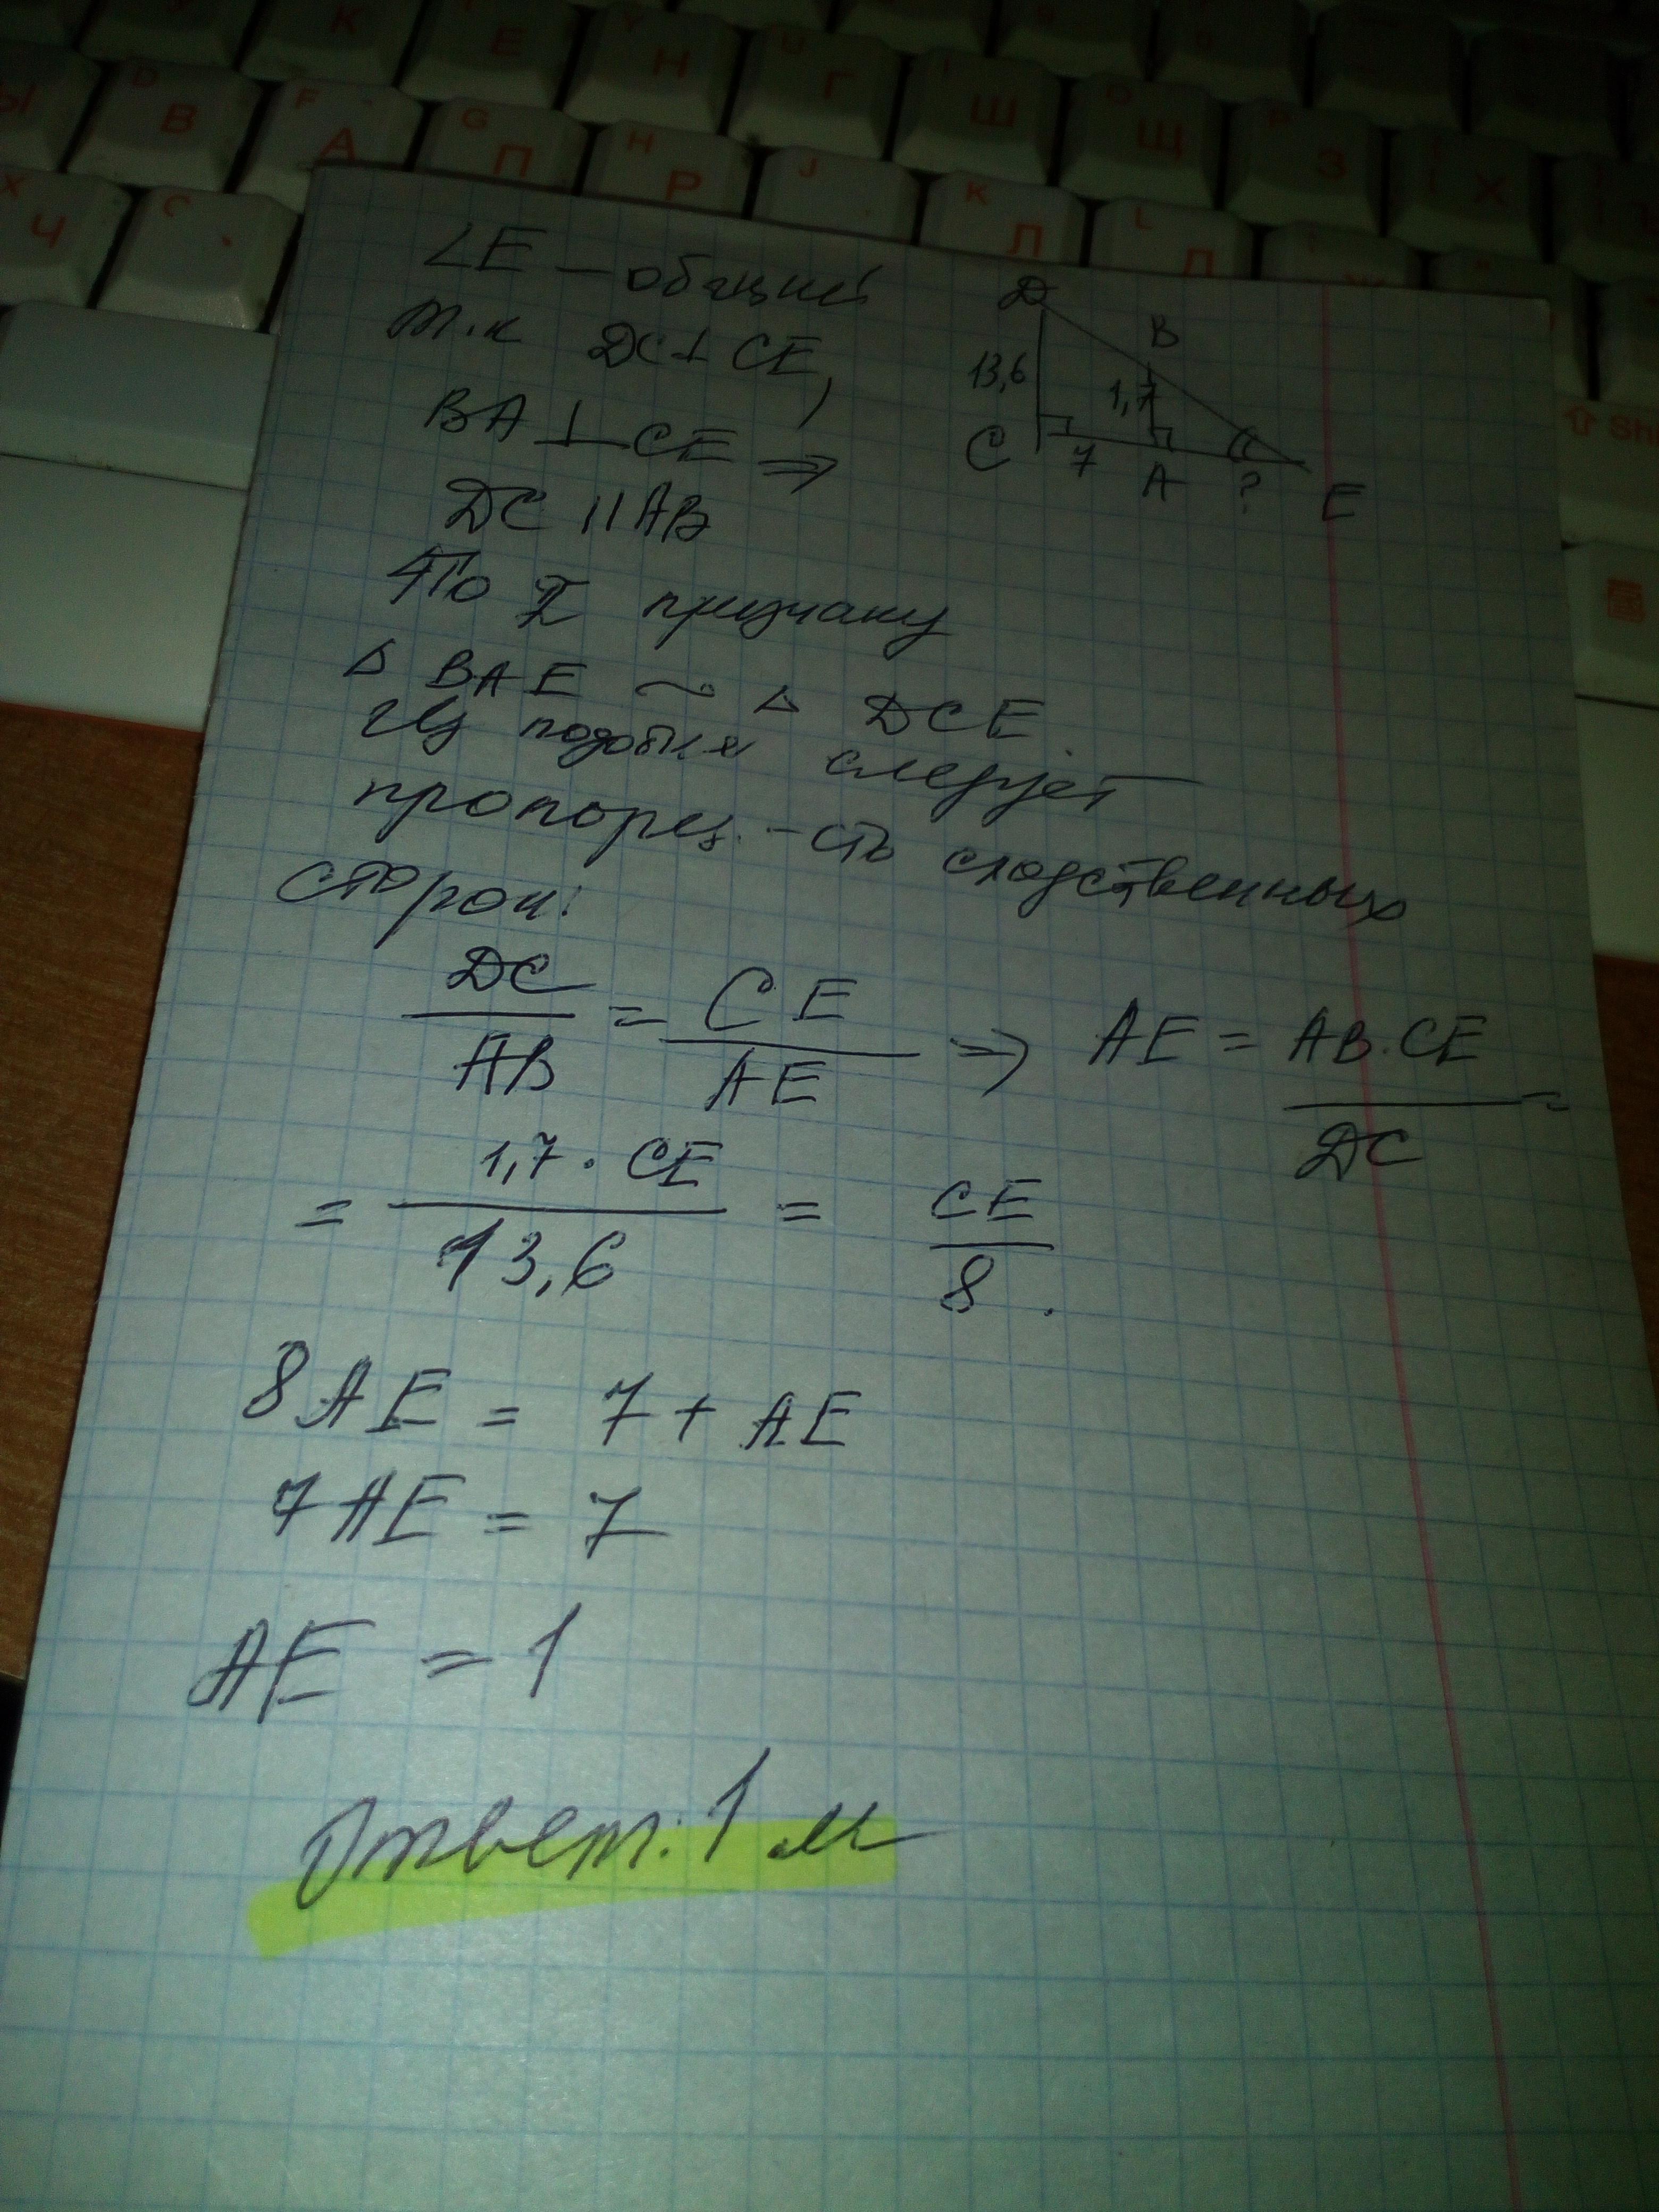 K
E
Y
Н
U
Г
I
Ш
O
Щ
P
З
Х
Ы
D
В
F
А
G
П
H
Р
J
K
Л
L
Д
X
Ч
C
Shi
∠E – общий
т.к DC⊥CE,
BA⊥CE ⇒
DC || AB
По I признаку
△ BAE ~ △ DCE.
Из подобия следует
пропорц.-сть сходственных
сторон:
DC/AB = CE/AE ⇒ AE = AB·CE/DC =
= 1,7·CE/13,6 = CE/8.
8AE = 7 + AE
7AE = 7
AE = 1
Ответ: 1 м
D
B
13,6
1,7
C
7
A
?
E